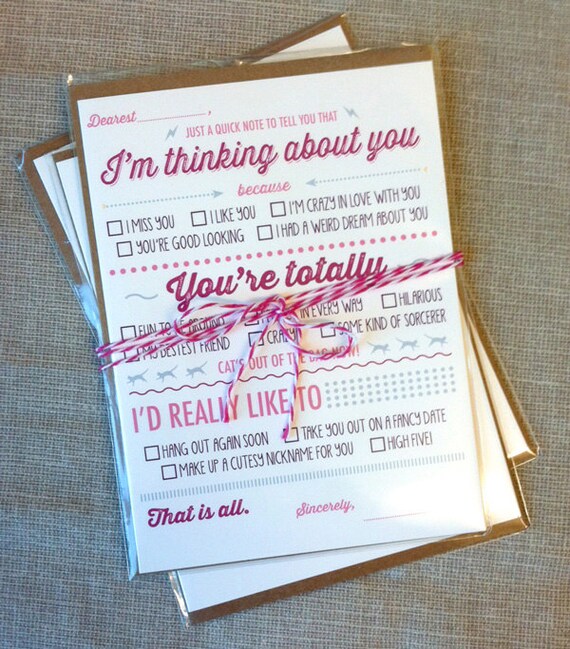 Dearest__________,
JUST A QUICK NOTE TO TELL YOU THAT
I'm thinking about you
because
I MISS YOU I LIKE YOU I'M CRAZY IN LOVE WITH YOU
YOU'RE GOOD LOOKING I HAD A WEIRD DREAM ABOUT YOU
You're totally
FUN TO BE AROUND IN EVERY WAY HILARIOUS
MY BESTEST FRIEND CRAZY SOME KIND OF SORCERER
CAT'S OUT OF THE BAG NOW!
I'D REALLY LIKE TO
HANG OUT AGAIN SOON TAKE YOU OUT ON A FANCY DATE
MAKE UP A CUTESY NICKNAME FOR YOU HIGH FIVE!
That is all. Sincerely, __________